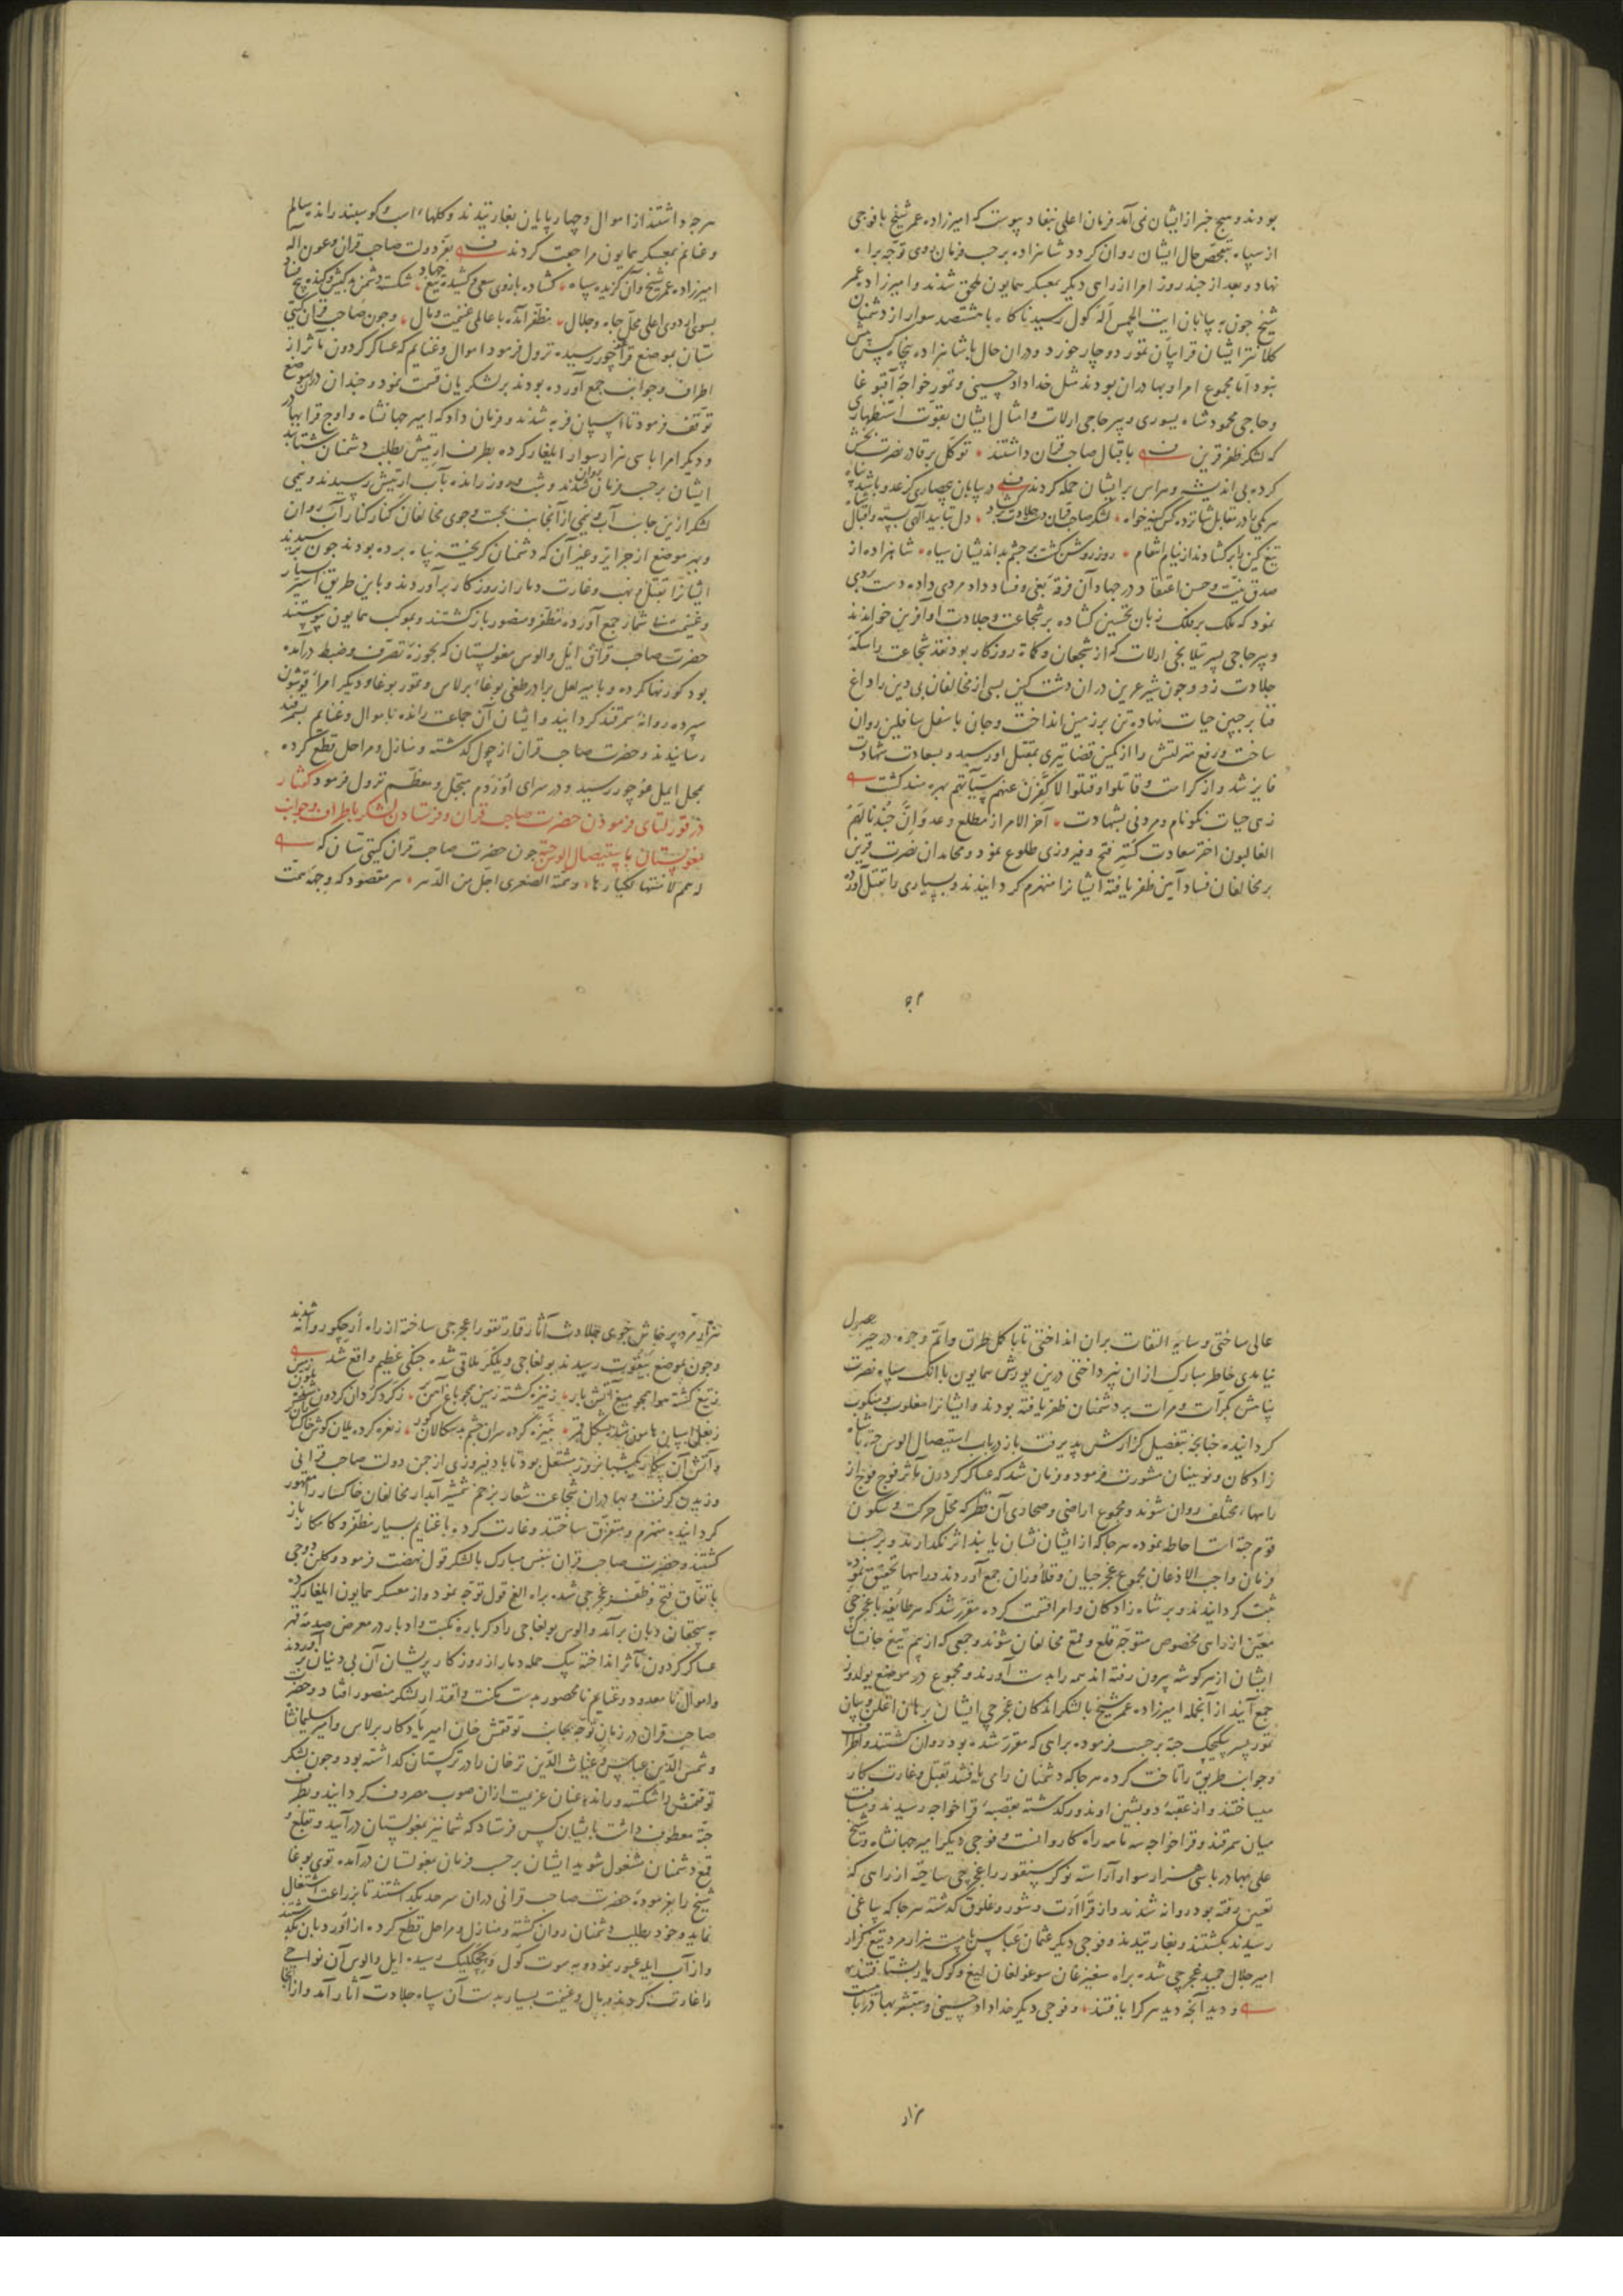 بودند و هیچ خبر از ایشان نمی آمد فرمان اعلی بنفاد پیوست که امیرزاده عمر شیخ با فوجی
از سپاه بتفحص حال ایشان روان کردد شاهزاده برحسب فرمان روی توجه براه
نهاد و بعد از چند روز امرا از راهی دیکر بمعسکر همایون ملحق شدند و امیرزاده عمر
شیخ جون به بیابان کول رسید ناکاه با هشتصد سوار از دشمنان
کلانتر ایشان قرابیان تمور دوچار خورد و دران حال با شاهزاده پنجاه کس بیش
نبود اما مجموع امرا و بهادران بودند مثل خداداد حسینی و تمور خواجه آقبوغا
و حاجی محمود شاه یسوری و پیر حاجی ارلات و امثال ایشان بقوت استظهاری
که لشکر ظفر قرین باقبال صاحب قران داشتند توکل بر قادر نصرت بخش
کرده بی اندیشه و هراس بر ایشان حمله کردند در بیابان
هر یکی را در مقابل شانزده کس کینه خواه لشکر صاحب قران دل بتایید الهی بسته و اقبال شاه
تیغ کین را برکشادند از نیام انتقام روز روشن کشت بر چشم بداندیشان سیاه شاهزاده از
صدق نیت و حسن اعتقاد در جهاد آن فرقه بغی و فساد داد مردی داده دست بردی
نمود که ملک بر فلک زبان تحسین کشاده بر شجاعت و جلادت او آفرین خواندند
و پیر حاجی پسر تیلانجی ارلات که از شجعان و کماة روزکار بود نقد شجاعت را سکه
جلادت زد و چون شیر عرین دران دشت کین بسی از مخالفان بی دین را داغ
فنا بر جبین حیات نهاده تن بر زمین انداخت و جان باسفل سافلین روان
ساخت و رفع منزلتش را از کمین قضا تیری بمقتل او رسید و بسعادت شهادت
فایز شد و از کرامت و قاتلوا و قتلوا لاکفرن عنهم سیآتهم بهره مند کشت
زهی حیات نکونام و مردنی بشهادت آخر الامر از مطلع وعد و ان جندنا لهم
الغالبون اختر سعادت کستر فتح و فیروزی طلوع نمود و مجاهدان نصرت قرین
بر مخالفان فساد آیین ظفر یافته ایشانرا منهزم کردانیدند و بسیاری را بقتل آورده
هرچه داشتند از اموال و چهارپایان بغارتیدند و کلهاء اسب و کوسپند رانده سالم
و غانم بمعسکر همایون مراجعت کردند بفر دولت صاحب قران و عون اله
امیرزاده عمر شیخ و آن کزیده سپاه کشاده بازوی سعی و کشیده تیغ جهاد شکسته دشمن
بسوی اردوی اعلی محل جاه و جلال مظفر آمده با عالمی غنیمت و مال و چون صاحب قران کیتی
ستان بموضع قراغوچور رسیده نزول فرمود اموال و غنایم که عساکر کردون مآثر از
اطراف و جوانب جمع آورده بودند بر لشکریان قسمت نمود و چندان دران موضع
توقف فرمود تا اسپان فربه شدند و فرمان داد که امیر جهانشاه و اوچ قرا بهادر
و دیکر امرا با سی هزار سوار ایلغار کرده بطرف ارتیش بطلب دشمنان شتابند
ایشان برحسب فرمان روان شدند و شب و روز رانده بآب ارتیش رسیدند و نیمی
لشکر ازین جانب آب و نیمی از آنجانب بجست و جوی مخالفان کنار کنار آب روان
و بهر موضع از جزایر و غیر آن که دشمنان کریخته پناه برده بودند جون برسیدند
ایشانرا بقتل و نهب و غارت دمار از روزکار برآوردند و باین طریق اسیر بسیار
و غنیمت بی شمار جمع آورده مظفر و منصور بازکشتند و بموکب همایون پیوستند
حضرت صاحب قران ایل و الوس مغولستان که بحوزه تصرف و ضبط درآمده
بود کوزنها کرده و بامیر لعل برادر طغی بوغاء برلاس و تمور بوغا و دیکر امراء قوشون
سپرده روانه سمرقند کردانید و ایشان آن جماعت رانده با موال و غنایم بسمرقند
رسانیدند و حضرت صاحب قران از چول کذشته و منازل و مراحل قطع کرده
بمحل ایمل غوجور رسید و در سرای اوردم مبجل و معظم نزول فرمود گفتار
در قورلتای فرمودن حضرت صاحب قران و فرستادن لشکر باطراف و جوانب
مغولستان باستیصال الوس جته جون حضرت صاحب قران کیتی ستان که
له همم لا منتهی لکبارها و همته الصغری اجل من الدهر هر مقصود که وجهه همت
عالی ساختی و سایه التفات بران انداختی تا باکمل طرق و اتم وجوه در حیز حصول
نیامدی خاطر مبارک از ان نپرداختی درین یورش همایون با آنک سپاه نصرت
پناهش بکرات و مرات بر دشمنان ظفر یافته بودند و ایشانرا مغلوب و منکوب
کردانیده چنانچه بتفصیل کزارش پذیرفت باز در باب استیصال الوس جته با شاه
زادکان و نوینان مشورت فرمود و فرمان شد که عساکر کردون مآثر فوج فوج از
راهها مختلف روان شوند و مجموع اراضی و صحاری آن قطر که محل حرکت و سکون
قوم جته است احاطه نموده هرجا که از ایشان نشان یابند اثر نکذارند و برحسب
فرمان واجب الاذعان مجموع غجرجیان و قلاوزان جمع آوردند و راهها تحقیق نموده
ثبت کردانیدند و بر شاه زادکان و امرا قسمت کرده مقرر شد که هر طایفه با غجرجی
معین از راهی مخصوص متوجه قلع و قمع مخالفان شوند و جمعی که از بیم تیغ جانستان
ایشان از هر کوشه بیرون رفته اند همه را بدست آورند و مجموع در موضع یولدوز
جمع آیند از آنجمله امیرزاده عمر شیخ با لشکر اندکان غجرجی ایشان برهان اغلن و بیان
تمور پسر بیکیجک جته برحسب فرموده براهی که مقرر شده بود روان کشتند و اطراف
و جوانب طریق را تاخت کرده هرجا که دشمنان را می یافتند بقتل و غارت کار
میساختند و از عقبه دوبشین اوندور کذشته بقصبه قراخواجه رسیدند و مسافت
میان سمرقند و قراخواجه سه ماهه راه کاروانست و فوجی دیکر امیر جهانشاه و شیخ
علی بهادر با سی هزار سوار آراسته نوکر سنقور را غجرجی ساخته از راهی که
تعیین رفته بود روانه شدند و از قراآرت و شورو غلوق کذشته هرجا که یاغی
رسیدند بکشتند و بغارتیدند و فوجی دیکر عثمان عباس با بیست هزار مرد تیغ کزار
امیر جلال حمید غجرجی شد براه سغیزغان سوغولغان لیغ و کوک یار بشتافتند
و دید آنچه دید هر کرا یافتند و فوجی دیکر خداداد حسینی و مبشر بهادر با بیست
هزار
هزار مرد پرخاش جوی جلادت آثار قمارتیمور را غجرجی ساخته از راه اریجکو روانه شدند
و چون بموضع بیقوت رسیدند بولغاجی و یلکر ملاقی شده جنکی عظیم واقع شد
ز تیغ کشته هوا همچو میغ آتش بار ز نیزه کشته زمین همچو باغ آهن
و آتش آن پیکار یکشبانروز مشتعل بود تا باد فیروزی از جن دولت صاحب قرانی
وزیدن کرفت و بهادران شجاعت شعار بزخم شمشیر آبدار مخالفان خاکسار را مقهور
کردانیده منهزم و متفرق ساختند و غارت کرده با غنایم بسیار مظفر و کامکار باز
کشتند و حضرت صاحب قران بنفس مبارک با لشکر قول نهضت فرمود و کلن دوجی
باتفاق فتح و ظفر غجرجی شده براه الغ قول توجه نمود و از معسکر همایون ایلغار کرده
به سیچقان دبان برآمد و الوس بولغاجی را دکرباره نکبت و ادبار در معرض صدمه قهر
عساکر کردون مآثر انداخته بیک حمله دمار از روزکار پریشان آن بی دینان برآوردند
و اموال نامعدود و غنایم نامحصور بدست مکنت و اقتدار لشکر منصور افتاد و حضرت
صاحب قران در زمان توجه بجانب توقتمش خان امیر یادکار برلاس و امیر سلیمانشاه
و شمس الدین عباس و غیاث الدین ترخان را در ترکستان کذاشته بود و چون لشکر
توقتمش را شکسته و رانده عنان عزیمت ازان صوب مصروف کردانید و بطرف
جته معطوف داشت بایشان کس فرستاد که شما نیز بمغولستان درآیید و بقلع و
قمع دشمنان مشغول شوید ایشان برحسب فرمان بمغولستان درآمده توی بوغا
شیخ را بفرموده حضرت صاحب قرانی دران سرحد بکذاشتند تا بزراعت اشتغال
نماید و خود بطلب دشمنان روان کشته و منازل و مراحل قطع کرده از اورد بان بکذشتند
و از آب ایله عبور نموده به سوت کول و جیچکلیک رسیده ایل و الوس آن نواحی
را غارت کردند و مال و غنیمت بسیار بدست آن سپاه جلادت آثار آمد و از آنجا